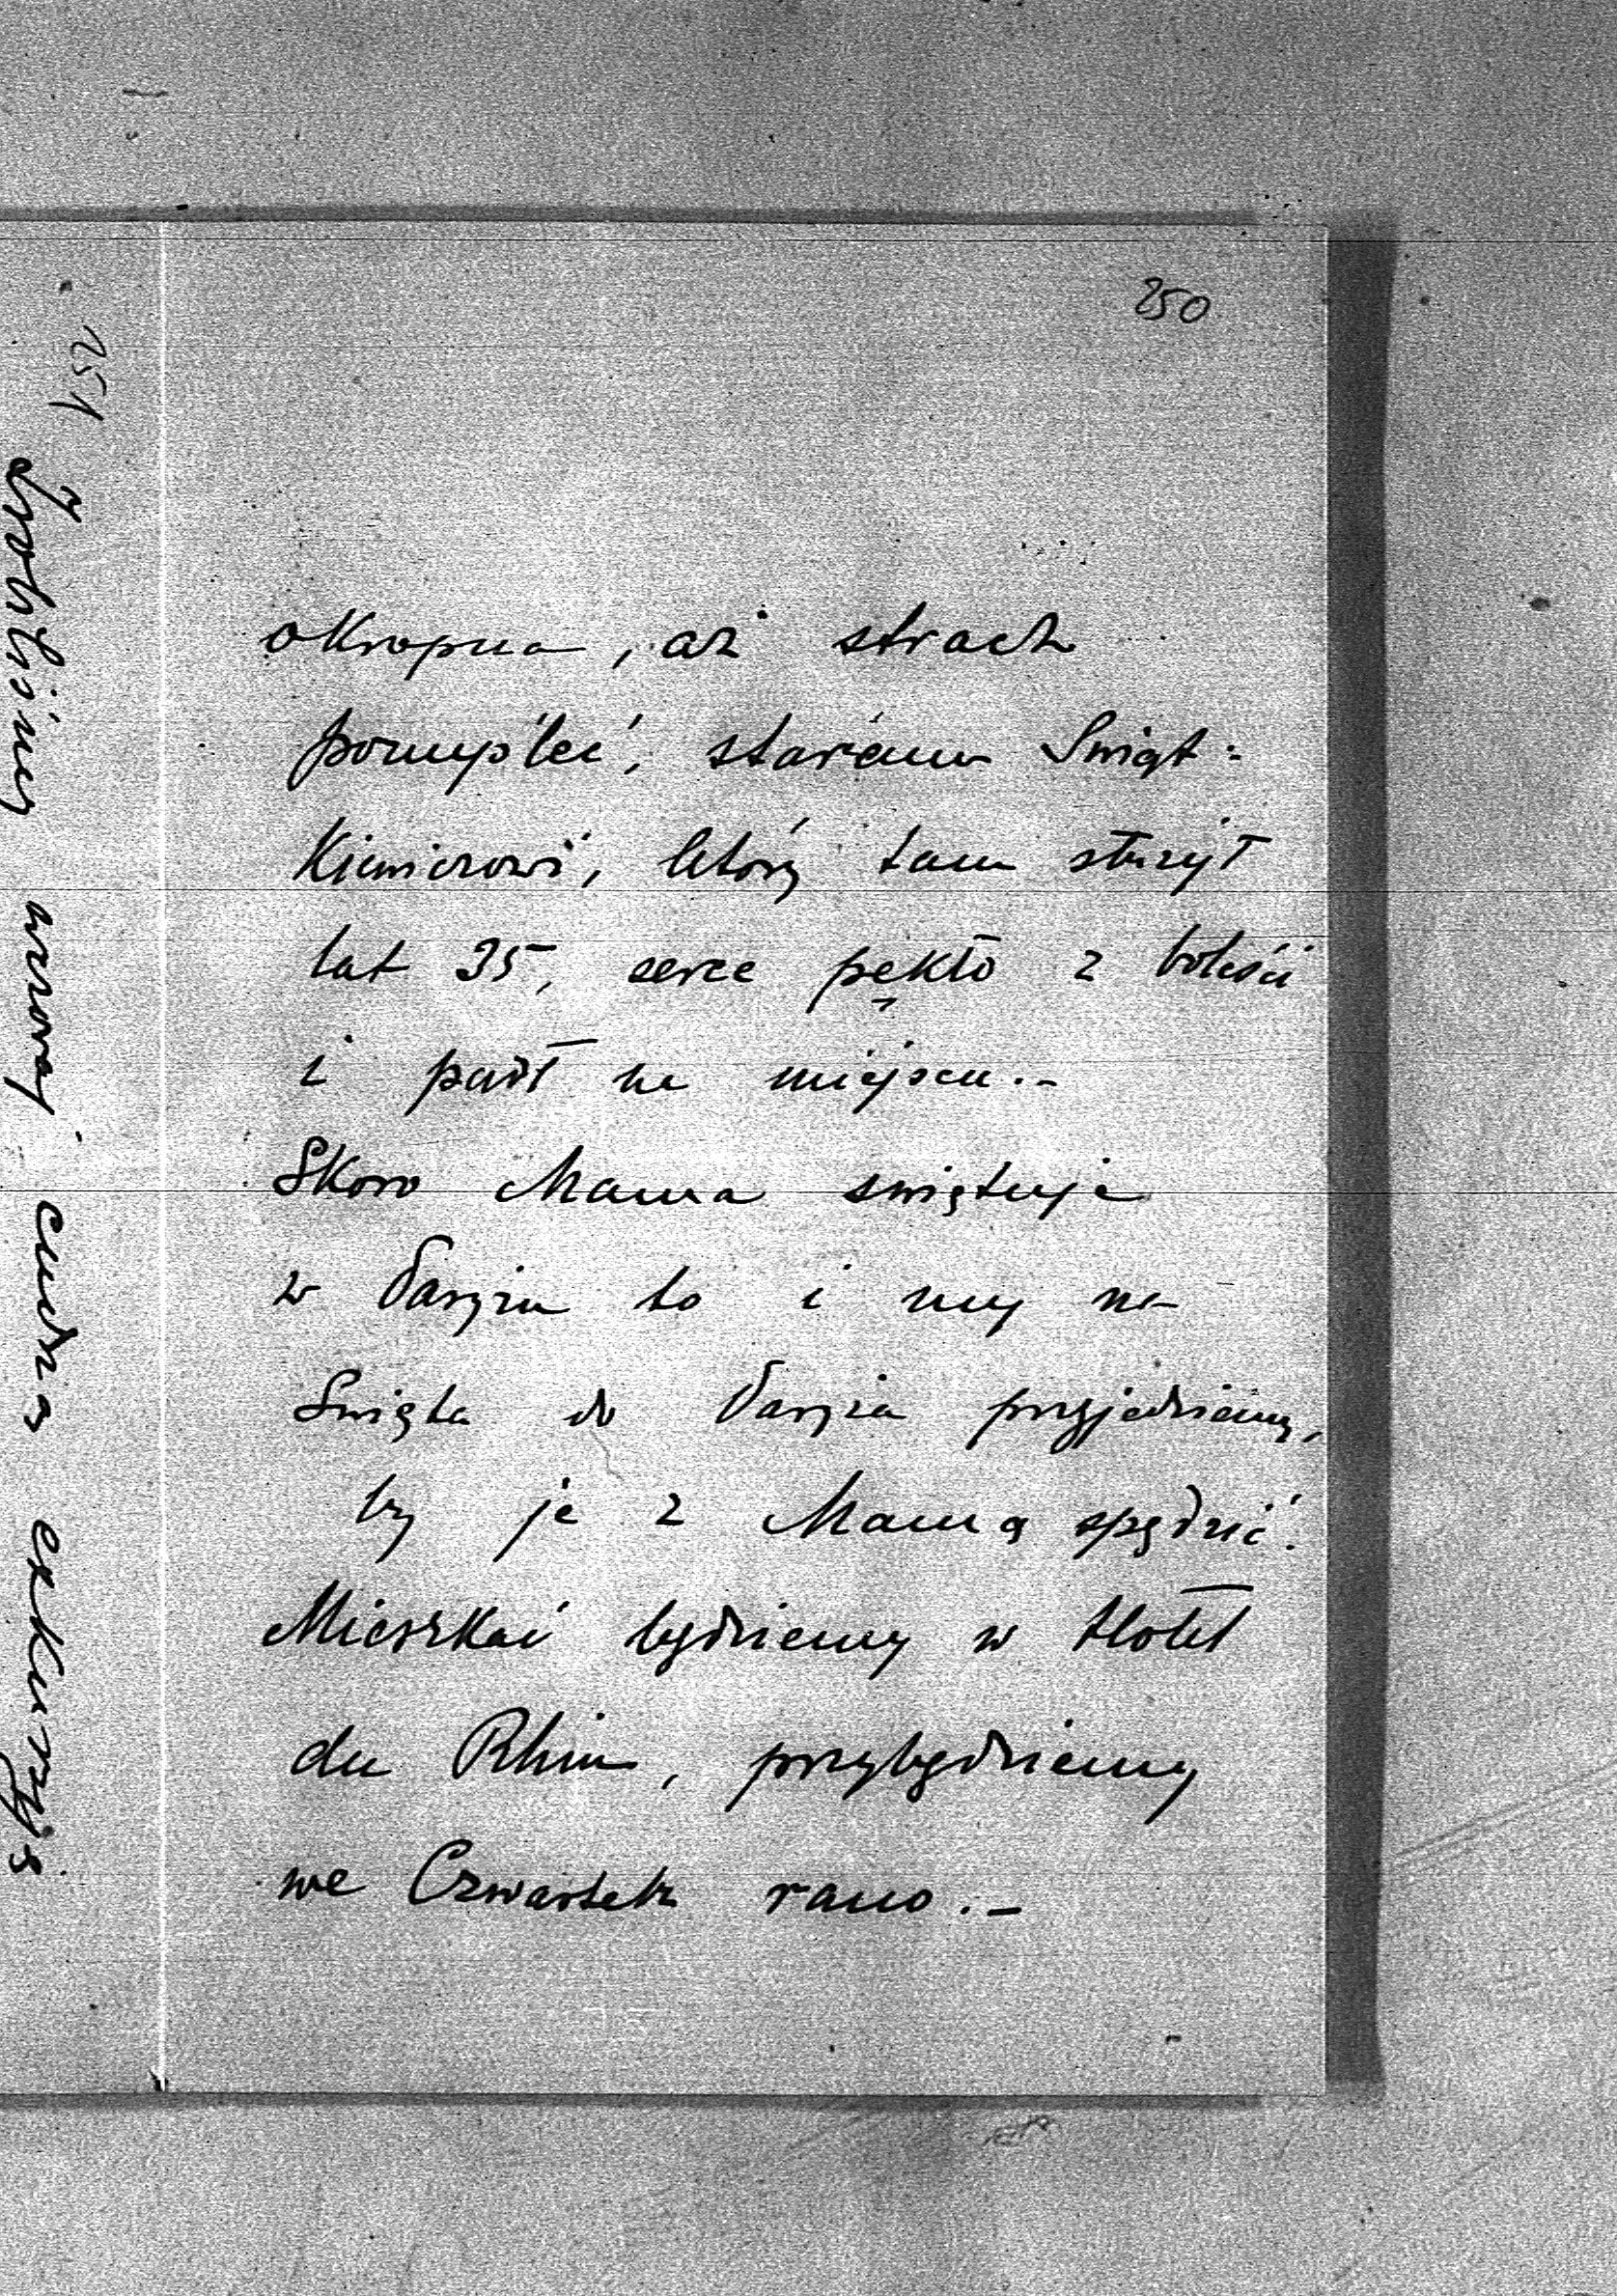 250
okropna, aż strach
pomyśleć, starému Swiąt-
Kiewiczowi, który tam służył
lat 35, serce pękło z boleści
i padł na miejscu.-
Skoro Mama swiętuje
w Paryżu to i my na
Swięta do Paryża przyjedziemy,
by je z Mamą spędzić.
Mieszkać będziemy w Hotel
du Rhin, przybędziemy
we Czwartek rano.-
251
Zrobiliśmy
wczoraj cudną ekskursyę